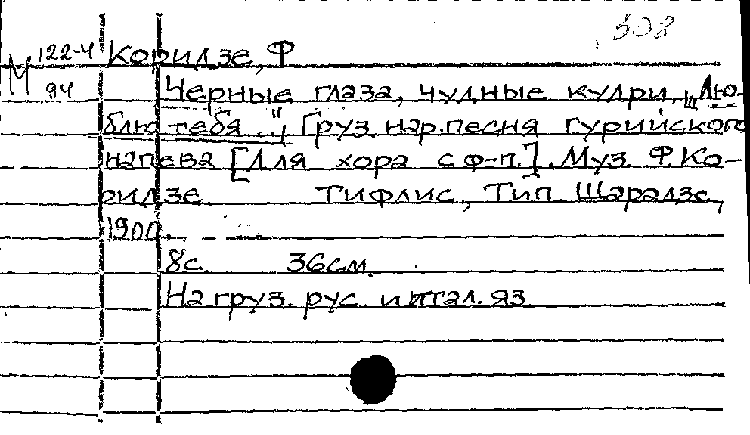 308
М 122-4 Коридзе, Ф
94 Черные глаза, чудные кудри, „Лю-
блю тебя..."; Груз. нар. песня гурийского
напева [Для хора с ф-п.]. Муз. Ф. Ко-
ридзе Тифлис, Тип. Шарадзе,
1900.
8с. 36см.
На груз. рус. и итал. яз